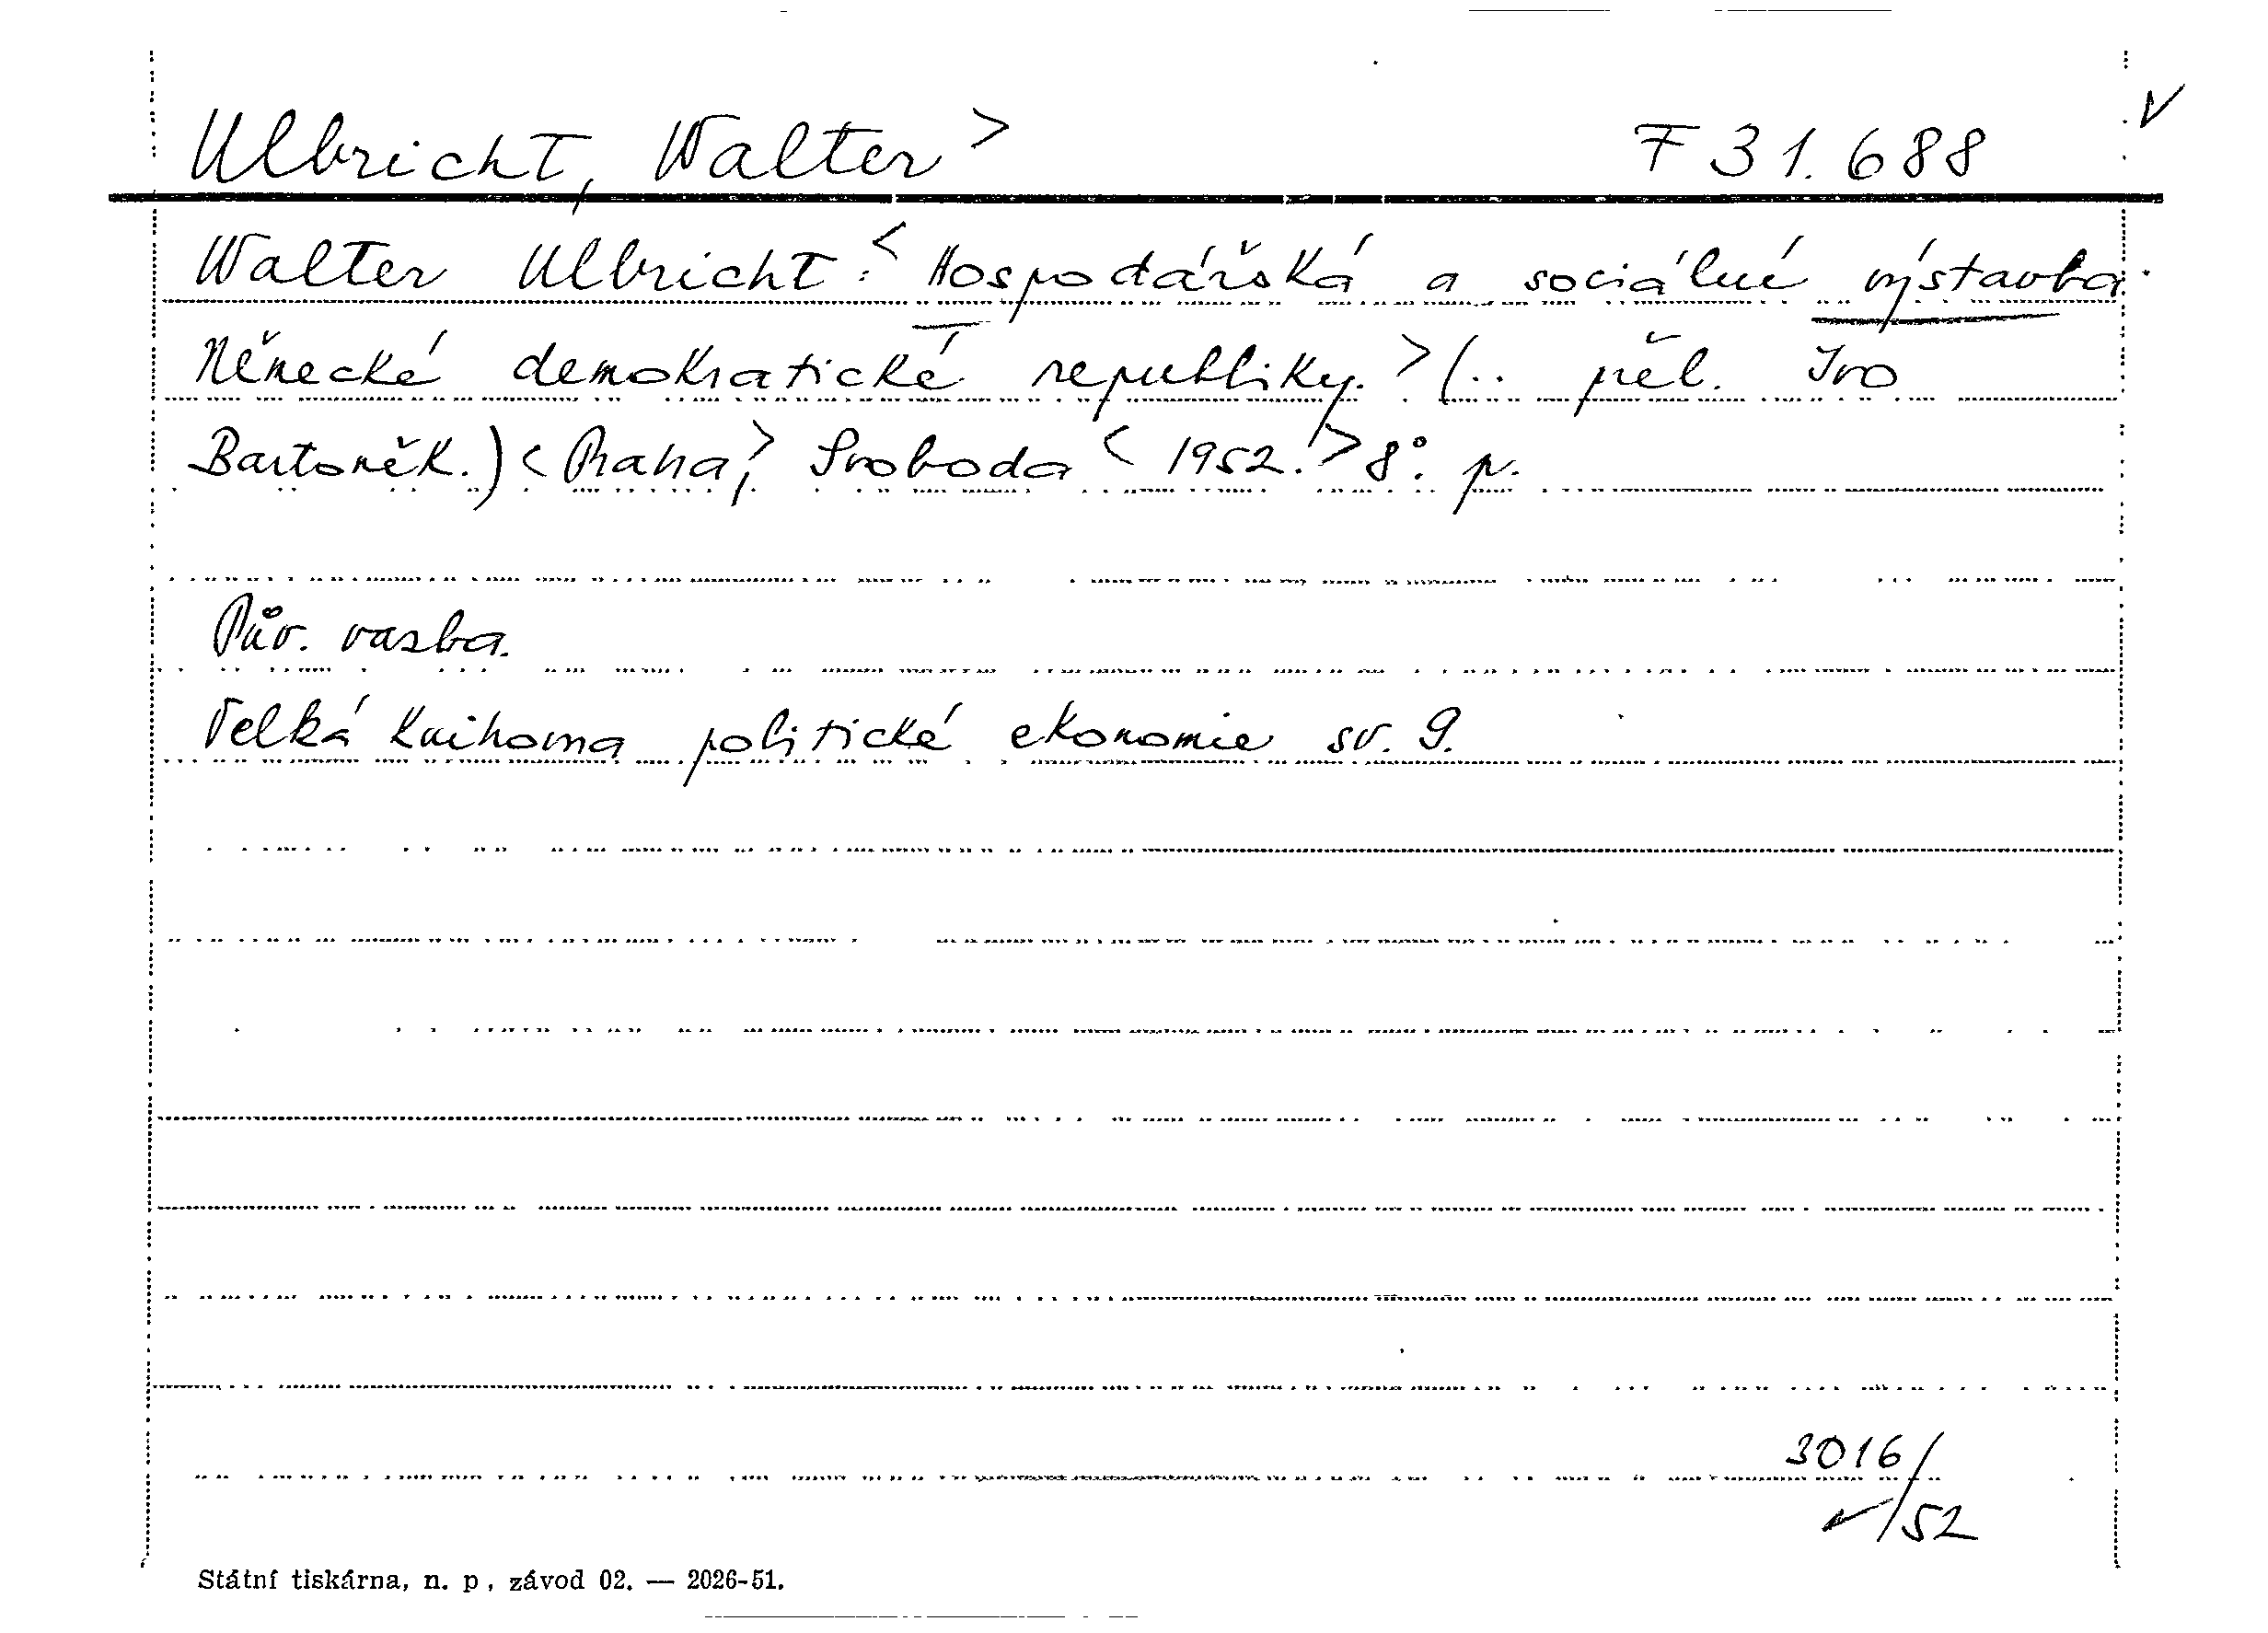 Ulbricht, Walter > F 31.688 V
Walter Ulbricht: < Hospodářská a sociálné výstavba
Německé demokratické republiky. > (.. přel. Ivo
Bartoněk.) < Praha, > Svoboda < 1952. > 8°. p.
Pův. vazba.
Velká knihovna politické ekonomie sv. 9.
3016/
/52
Státní tiskárna, n. p., závod 02. — 2026-51.